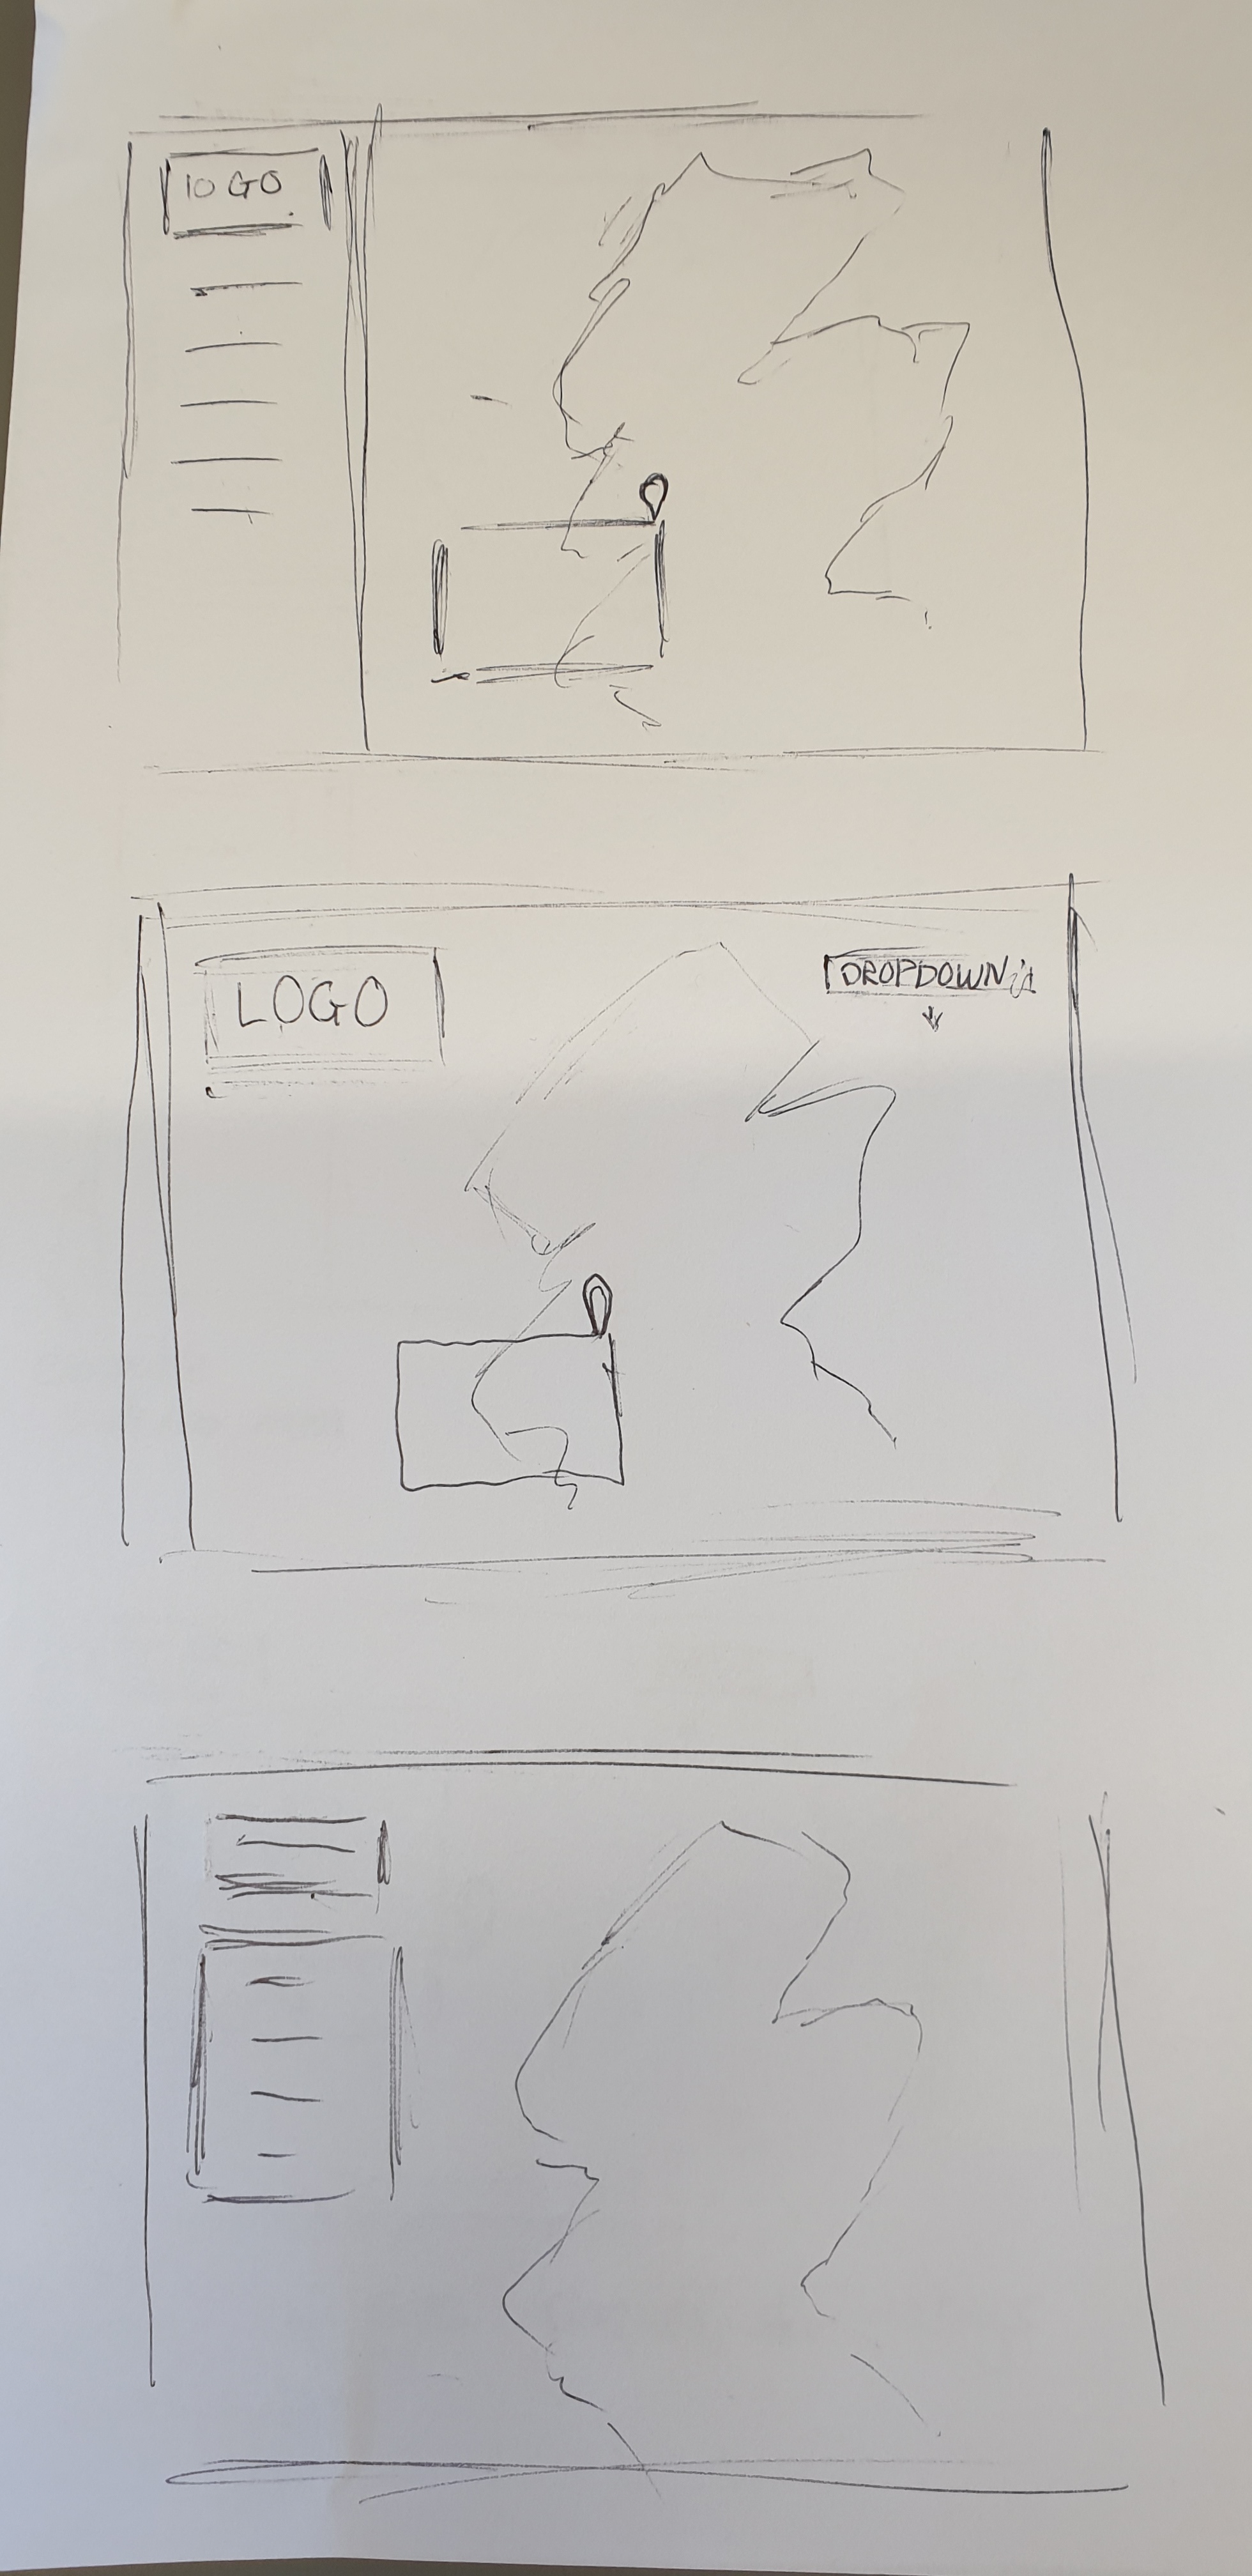 LOGO
LOGO
DROPDOWN